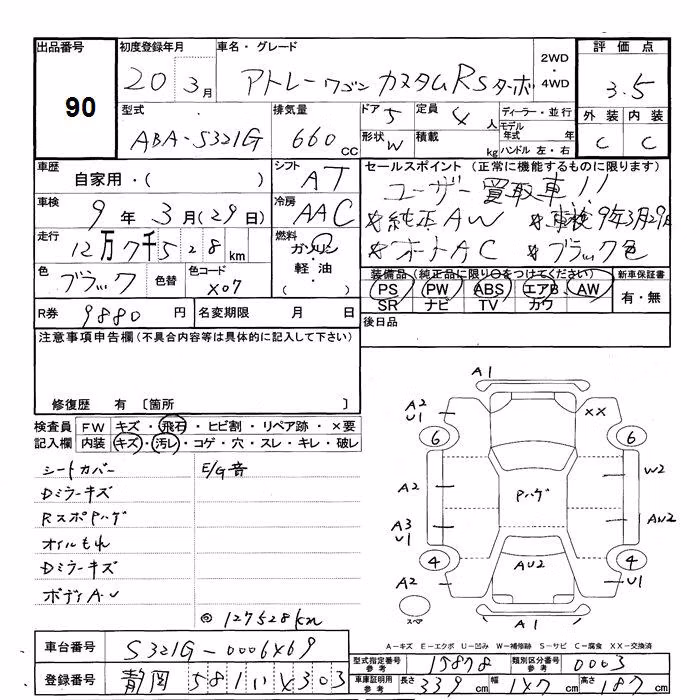 出品番号 90
初度登録年月 20 3月
車名・グレード アトレーワゴン カスタムRSターボ
2WD・4WD
評価点 3.5
外装 内装
C C
型式 ABA-S321G
排気量 660 CC
ドア 5 定員 4 人
形状 W 積載 kg
ディーラー・並行
モデル年式 年
ハンドル 左・右
車歴 自家用・( )
シフト AT
車検 9年3月(29日)
冷房 AAC
走行 12万7千528km
燃料 ガソリン・軽油・( )
色 ブラック 色替 色コード X07
R券 9880円 名変期限 月 日
セールスポイント (正常に機能するものに限ります)
ユーザー買取車!!
*純正AW *車検9年3月29日
*オートAC *ブラック色
装備品(純正品に限り○をつけてください) 新車保証書
PS PW ABS エアB AW 有・無
SR ナビ TV カワ
後日品
注意事項申告欄(不具合内容等は具体的に記入して下さい)
修復歴 有 〔箇所 〕
検査員記入欄 FW キズ・飛石・ヒビ割・リペア跡・×要
内装 キズ・汚レ・コゲ・穴・スレ・キレ・破レ
シートカバー E/G音
Dミラーキズ
RスポPハゲ
オイルもれ
Dミラーキズ
ボディA・U
◎127528km
A1
A2 U1 XX
6 6
A2 Pハゲ W2
A3 U1 AU2
4 4
A2 AU2 U1
スペア A1
A-キズ E-エクボ U-凹み W-補修跡 S-サビ C-腐食 XX-交換済
車台番号 S321G-0006469
登録番号 静岡 581い4303
型式指定番号参考 15878 類別区分番号参考 0003
車庫証明用参考 長さ 339cm 幅 147cm 高さ 187cm